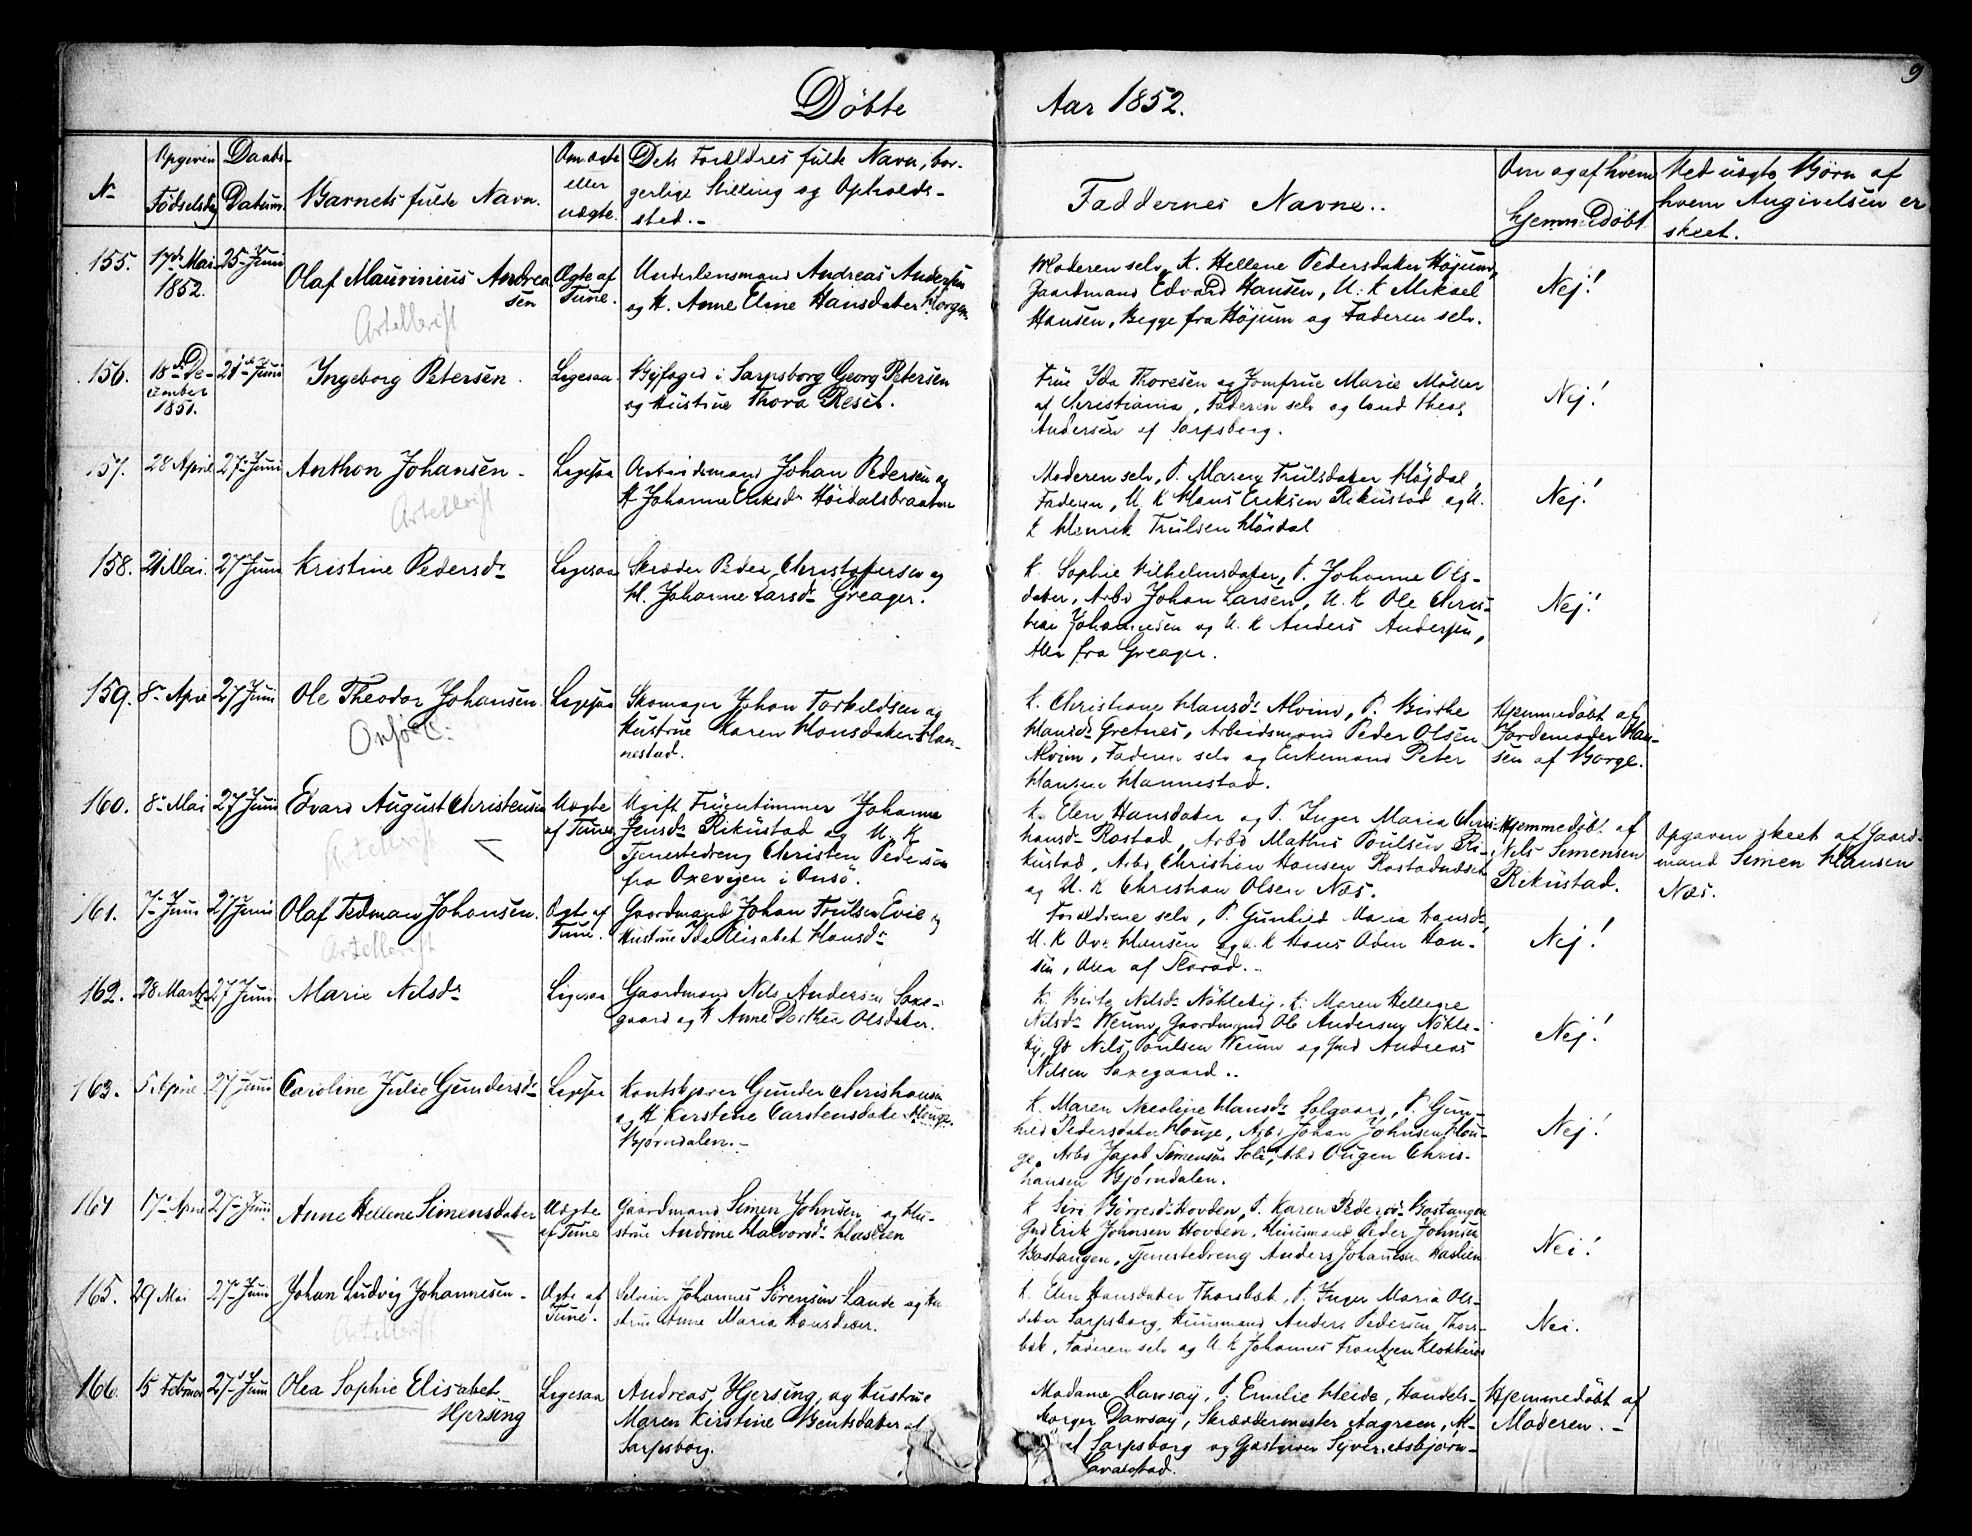 9
Døbte Aar 1852.
No
Opgiven
Fødselsdag
Daabs-
Datum.
Barnets fulde Navn.
Om ægte
eller
uægte.
Dets Forældres fulde Navn, bor-
gerlige Stilling og Opholds-
sted.-
Faddernes Navne..
Om og af hvem
hjemmedøbt
Ved uægte Børn af
hvem Angivelsen er
skeet.
155.
17de Mai
1852.
25- Juni
Olaf Maurinius Andrea
sen
Ægte af
Tune.
Underlensmand Andreas Andersen
og H. Anne Eline Hansdatter Borgen
Moderen selv, K. Hellene Pedersdatter Højum,
Gaardmand Edvard Hansen, U. K Mikael
Hansen, Begge fra Højum og Faderen selv.
Nej!
156.
18de De-
cember
1851.
Juni
Ingeborg Petersen.
Ligesaa.
Byfoged i Sarpsborg Georg Petersen
og Hustrue Thora Resel.
Frue Ida Thoresen og Jomfrue Marie Møller
af Christiania, Faderen selv og Cand theol
Andersen af Sarpsborg.
Nej!
157.
28 April
27- Juni
Anthon Johansen-
Ligesaa
Arbeidsmand Johan Pedersen og
H Johanne Eriksdr Höidalsbraaten
Moderen selv, P. Maren Trulsdatter Höjdal,
Faderen, U. K Hans Eriksen Rikustad og U.
K Henrik Trulsen Höidal
Nej!
158.
21 Mai.
27 Juni
Kristine Pedersdr
Ligesaa
Skræder Peder Christofersen og
H. Johanne Larsdr Greager.
K. Sophie Vilhelmsdatter, P. Johanne Ols-
datter, Arbd Johan Larsen, U. K Ole Chris-
tian Johannesen og U. K Anders Andersen,
Alle fra Greager.
Nej!
159.
8- April
27 Juni
Ole Theodor Johansen.
Ligesaa
Skomager Johan Torkildsen og
Hustrue Karen Hansdatter Han-
nestad.
K. Christiane Hansdr Alvim, P. Birthe
Hansdr Gretnes, Arbeidsmand Peder Olsen
Alvim, Faderen selv og Enkemand Peter
Hansen Hannestad.
Hjemmedøbt af
Jordemoder Han-
sen af Borge.
160.
8- Mai
27 Juni
Edvard August Christensen
Uægte
af Tune
Ugift Fruentimmer Johanne
Jensdr Rikustad og U. K
Tjenestedreng Christen Pedersen
fra Oxevigen i Onsö.
K. Elen Hansdatter og P. Inger Maria Chris-
hansdr Rostad, Arbd Mathis Poulsen Ri-
kustad, Arbd Christian Hansen Rostadødset
og U. K Christian Olsen Næs.
Hjemmedøbt af
Nils Simensen
Rikustad.
Opgaven skeet af Gaard-
mand Simen Hansen
Næs.
161.
7- Juni
27 Juni
Olaf Tedman Johansen.
Ægte af
Tune.
Gaardmand Johan Poulsen Evie og
Hustrue Ida Elisabet Hansdr
Forældrene selv, P. Gunhild Maria Hansdr,
U. K Ove Hansen og U. K Hans Aden Han-
sen, Alle af
Nej!
162.
28 Marts
27 Juni
Marie Nilsdr
Ligesaa
Gaardmand Nils Andersen Saxe-
gaard og K Anne Dorthea Olsdatter.
K. Birte Nilsdr Nökleby, K. Maren Hellene
Nilsdr Weum, Gaardmand Ole Andersen Nökle-
by, Gd Nils Poulsen Weum og Gmd Andreas
Nilsen Saxegaard..
Nej!
163.
5 April
27 Juni
Caroline Julie Gundersdr
Ligesaa
Gunder Christiansen
og H Kerstine Carstensdatter Houge.
Bjørndalen.-
K. Maren Nicoline Hansdr Solgaard, P. Gun-
hild Pedersdatter Houge, Arbd Johan Johnsen Hou-
ge, Arbd Jacob Simensen Soli, Arbd Ougen Chris-
hansen Bjørndalen.
Nej!
164
17- April
27- Juni
Anne Hellene Simensdatter
Uægte
af Tune
Gaardmand Simen Johnsen og Hu-
strue Andrine Halvorsdr Haslien
K Siri Börresdr Hovden, P. Karen Pedersdr Bastangen
Gmd Erik Johnsen Hovden, Huusmand Peder Johnsen
Bastangen, Tjenestedreng Anders Johansen Haslien
Nei!
165.
29 Mai
27- Juni
Johan Ludvig Johannesen-
Ægte af
Tune.
Selveier Johannes Sörensen Lande og Hu
strue Anne Maria Hansdatter.
K. Elen Hansdatter Thorsbek, P. Inger Maria Ols-
datter Sarpsborg, Huusmand Anders Pedersen Thors-
bek, Faderen selv og U. K Johannes Frantzen
Nei.
166.
15 Februar
27- Juni
Olea Sophie Elisabet
Hjersing
Ligesaa
Andreas Hjersing og Hustrue
Maren Kirstine Bentsdatter af
Sarpsborg.
Madame Dawsay, P. Emilie Heide, Handels-
borger Dawsay, Skræddermester Aagreen, A-
af Sarpsborg og Gastgiver Syver
Hjemmedøbt af
Moderen.-